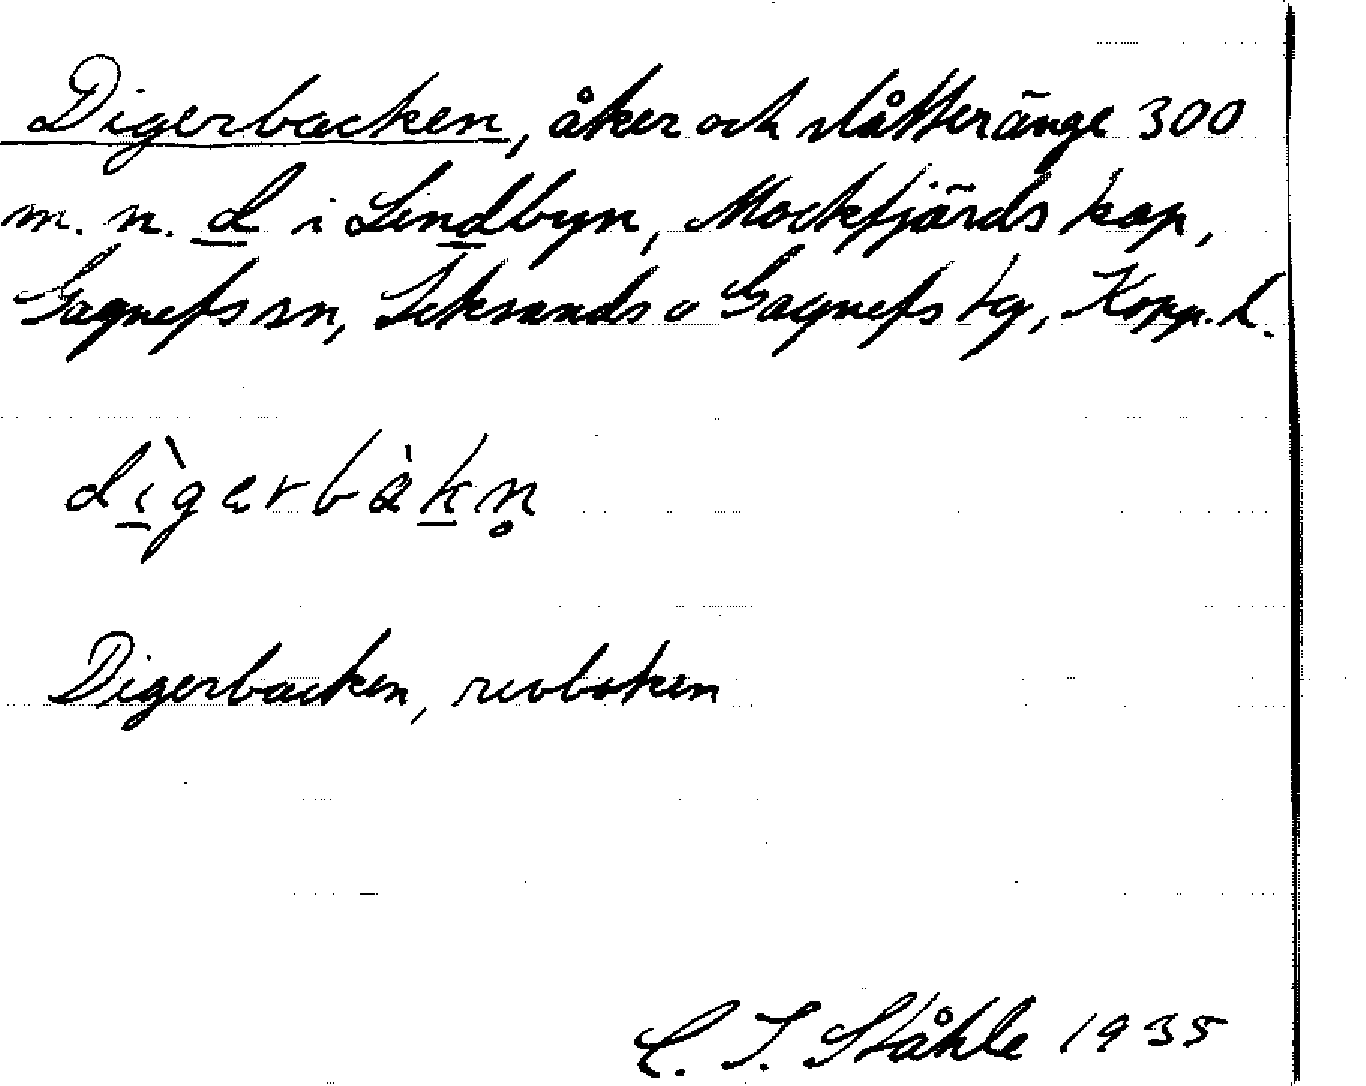 Digerbacken, åker och slåtteränge 300
m. n. d i Lindbyn, Mockfjärds kap,
Gagnefs sn, Leksands o Gagnefs tg, Kopp. l.
dìgerbàkn̥
Digerbacken, revboken
C. I. Ståhle 1935